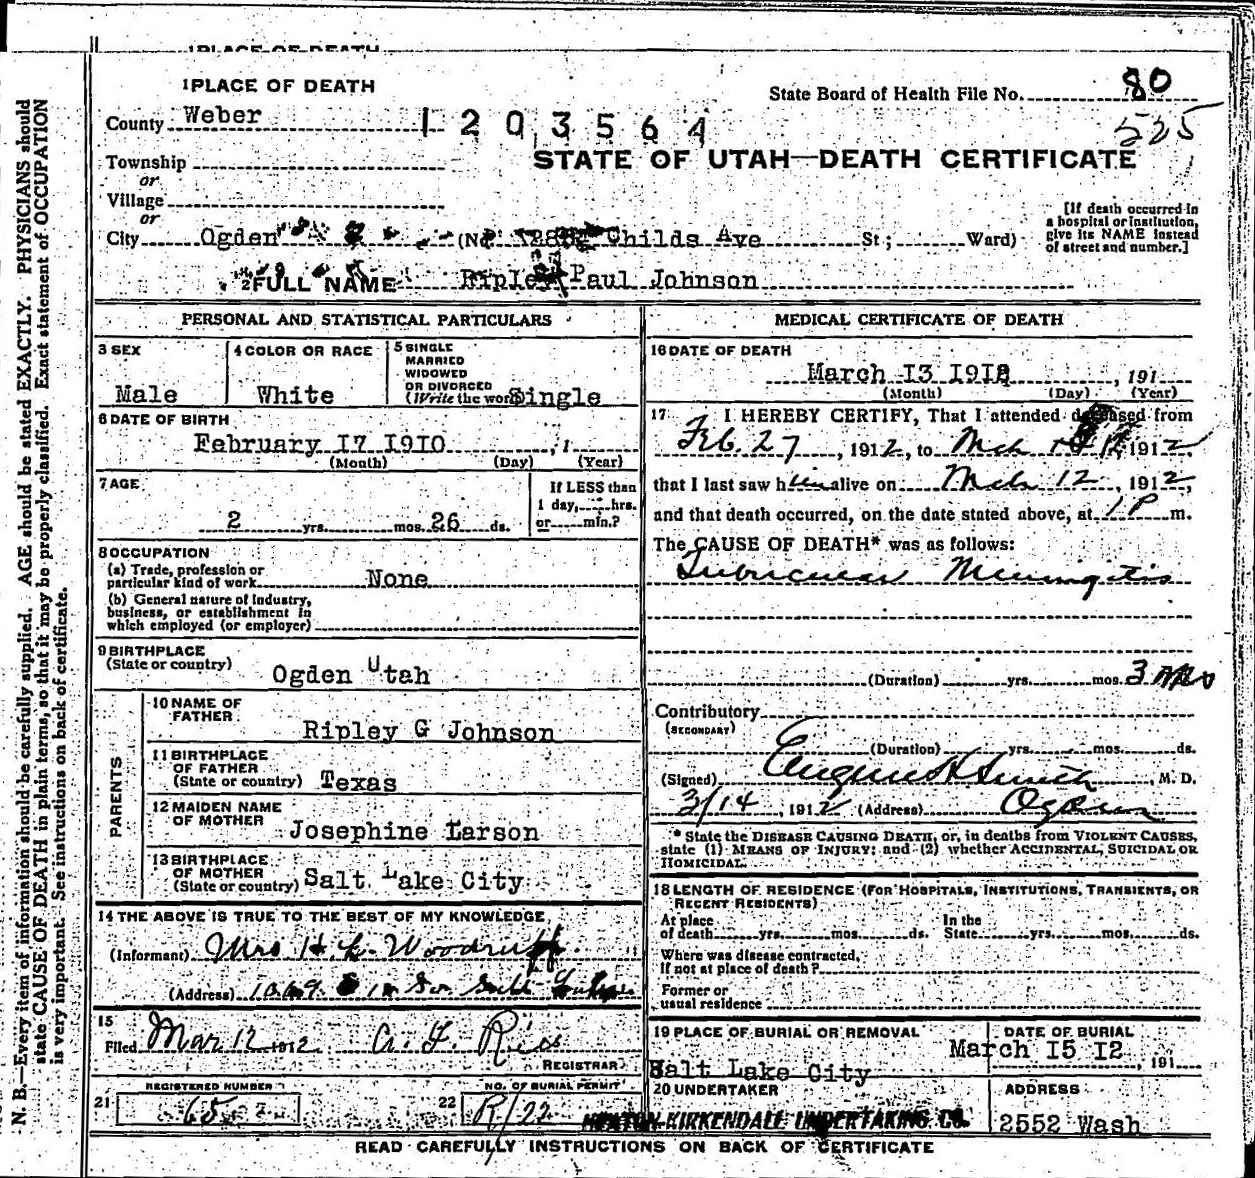 1 PLACE OF DEATH
1 PLACE OF DEATH
State Board of Health File No. 80
County Weber
1 2 0 3 5 6 4
525
STATE OF UTAH—DEATH CERTIFICATE
Township
or
Village
or
[If death occurred in a hospital or institution, give its NAME instead of street and number.]
City Ogden (No. Childs Ave St; Ward)
2 FULL NAME Ripley Paul Johnson
PERSONAL AND STATISTICAL PARTICULARS
3 SEX Male
4 COLOR OR RACE White
5 SINGLE MARRIED WIDOWED OR DIVORCED (Write the word) Single
6 DATE OF BIRTH
February I7 I9I0 , 1
(Month) (Day) (Year)
7 AGE
2 yrs. mos. 26 ds.
If LESS than 1 day, hrs. or min.?
8 OCCUPATION
(a) Trade, profession or particular kind of work None
(b) General nature of industry, business, or establishment in which employed (or employer)
9 BIRTHPLACE
(State or country) Ogden Utah
PARENTS
10 NAME OF FATHER Ripley G Johnson
11 BIRTHPLACE OF FATHER (State or country) Texas
12 MAIDEN NAME OF MOTHER Josephine Larson
13 BIRTHPLACE OF MOTHER (State or country) Salt Lake City
14 THE ABOVE IS TRUE TO THE BEST OF MY KNOWLEDGE
(Informant) Mrs H. L. Woodruff
(Address)
15
Filed Mar 12 1912
REGISTRAR
21 REGISTERED NUMBER 65
22 NO. OF BURIAL PERMIT R/22
MEDICAL CERTIFICATE OF DEATH
16 DATE OF DEATH
March I3 I9I2 , 191
(Month) (Day) (Year)
17 I HEREBY CERTIFY, That I attended deceased from
Feb. 27, 1912, to Mch 12 1912,
that I last saw him alive on Mch 12, 1912,
and that death occurred, on the date stated above, at 1 P m.
The CAUSE OF DEATH* was as follows:
Tubercular Meningitis
(Duration) yrs. mos. 3
Contributory
(SECONDARY)
(Duration) yrs. mos. ds.
(Signed) Eugene H Smith, M. D.
3/14, 1912 (Address) Ogden
* State the DISEASE CAUSING DEATH, or, in deaths from VIOLENT CAUSES, state (1) MEANS OF INJURY; and (2) whether ACCIDENTAL, SUICIDAL OR HOMICIDAL.
18 LENGTH OF RESIDENCE (FOR HOSPITALS, INSTITUTIONS, TRANSIENTS, OR RECENT RESIDENTS)
At place of death yrs. mos. ds. In the State yrs. mos. ds.
Where was disease contracted, if not at place of death?
Former or usual residence
19 PLACE OF BURIAL OR REMOVAL
Salt Lake City
DATE OF BURIAL
March I5 I2 , 191
20 UNDERTAKER
KIRKENDALL UNDERTAKING CO.
ADDRESS
2552 Wash
READ CAREFULLY INSTRUCTIONS ON BACK OF CERTIFICATE
N. B.—Every item of information should be carefully supplied. AGE should be stated EXACTLY. PHYSICIANS should
state CAUSE OF DEATH in plain terms, so that it may be properly classified. Exact statement of OCCUPATION
is very important. See instructions on back of certificate.